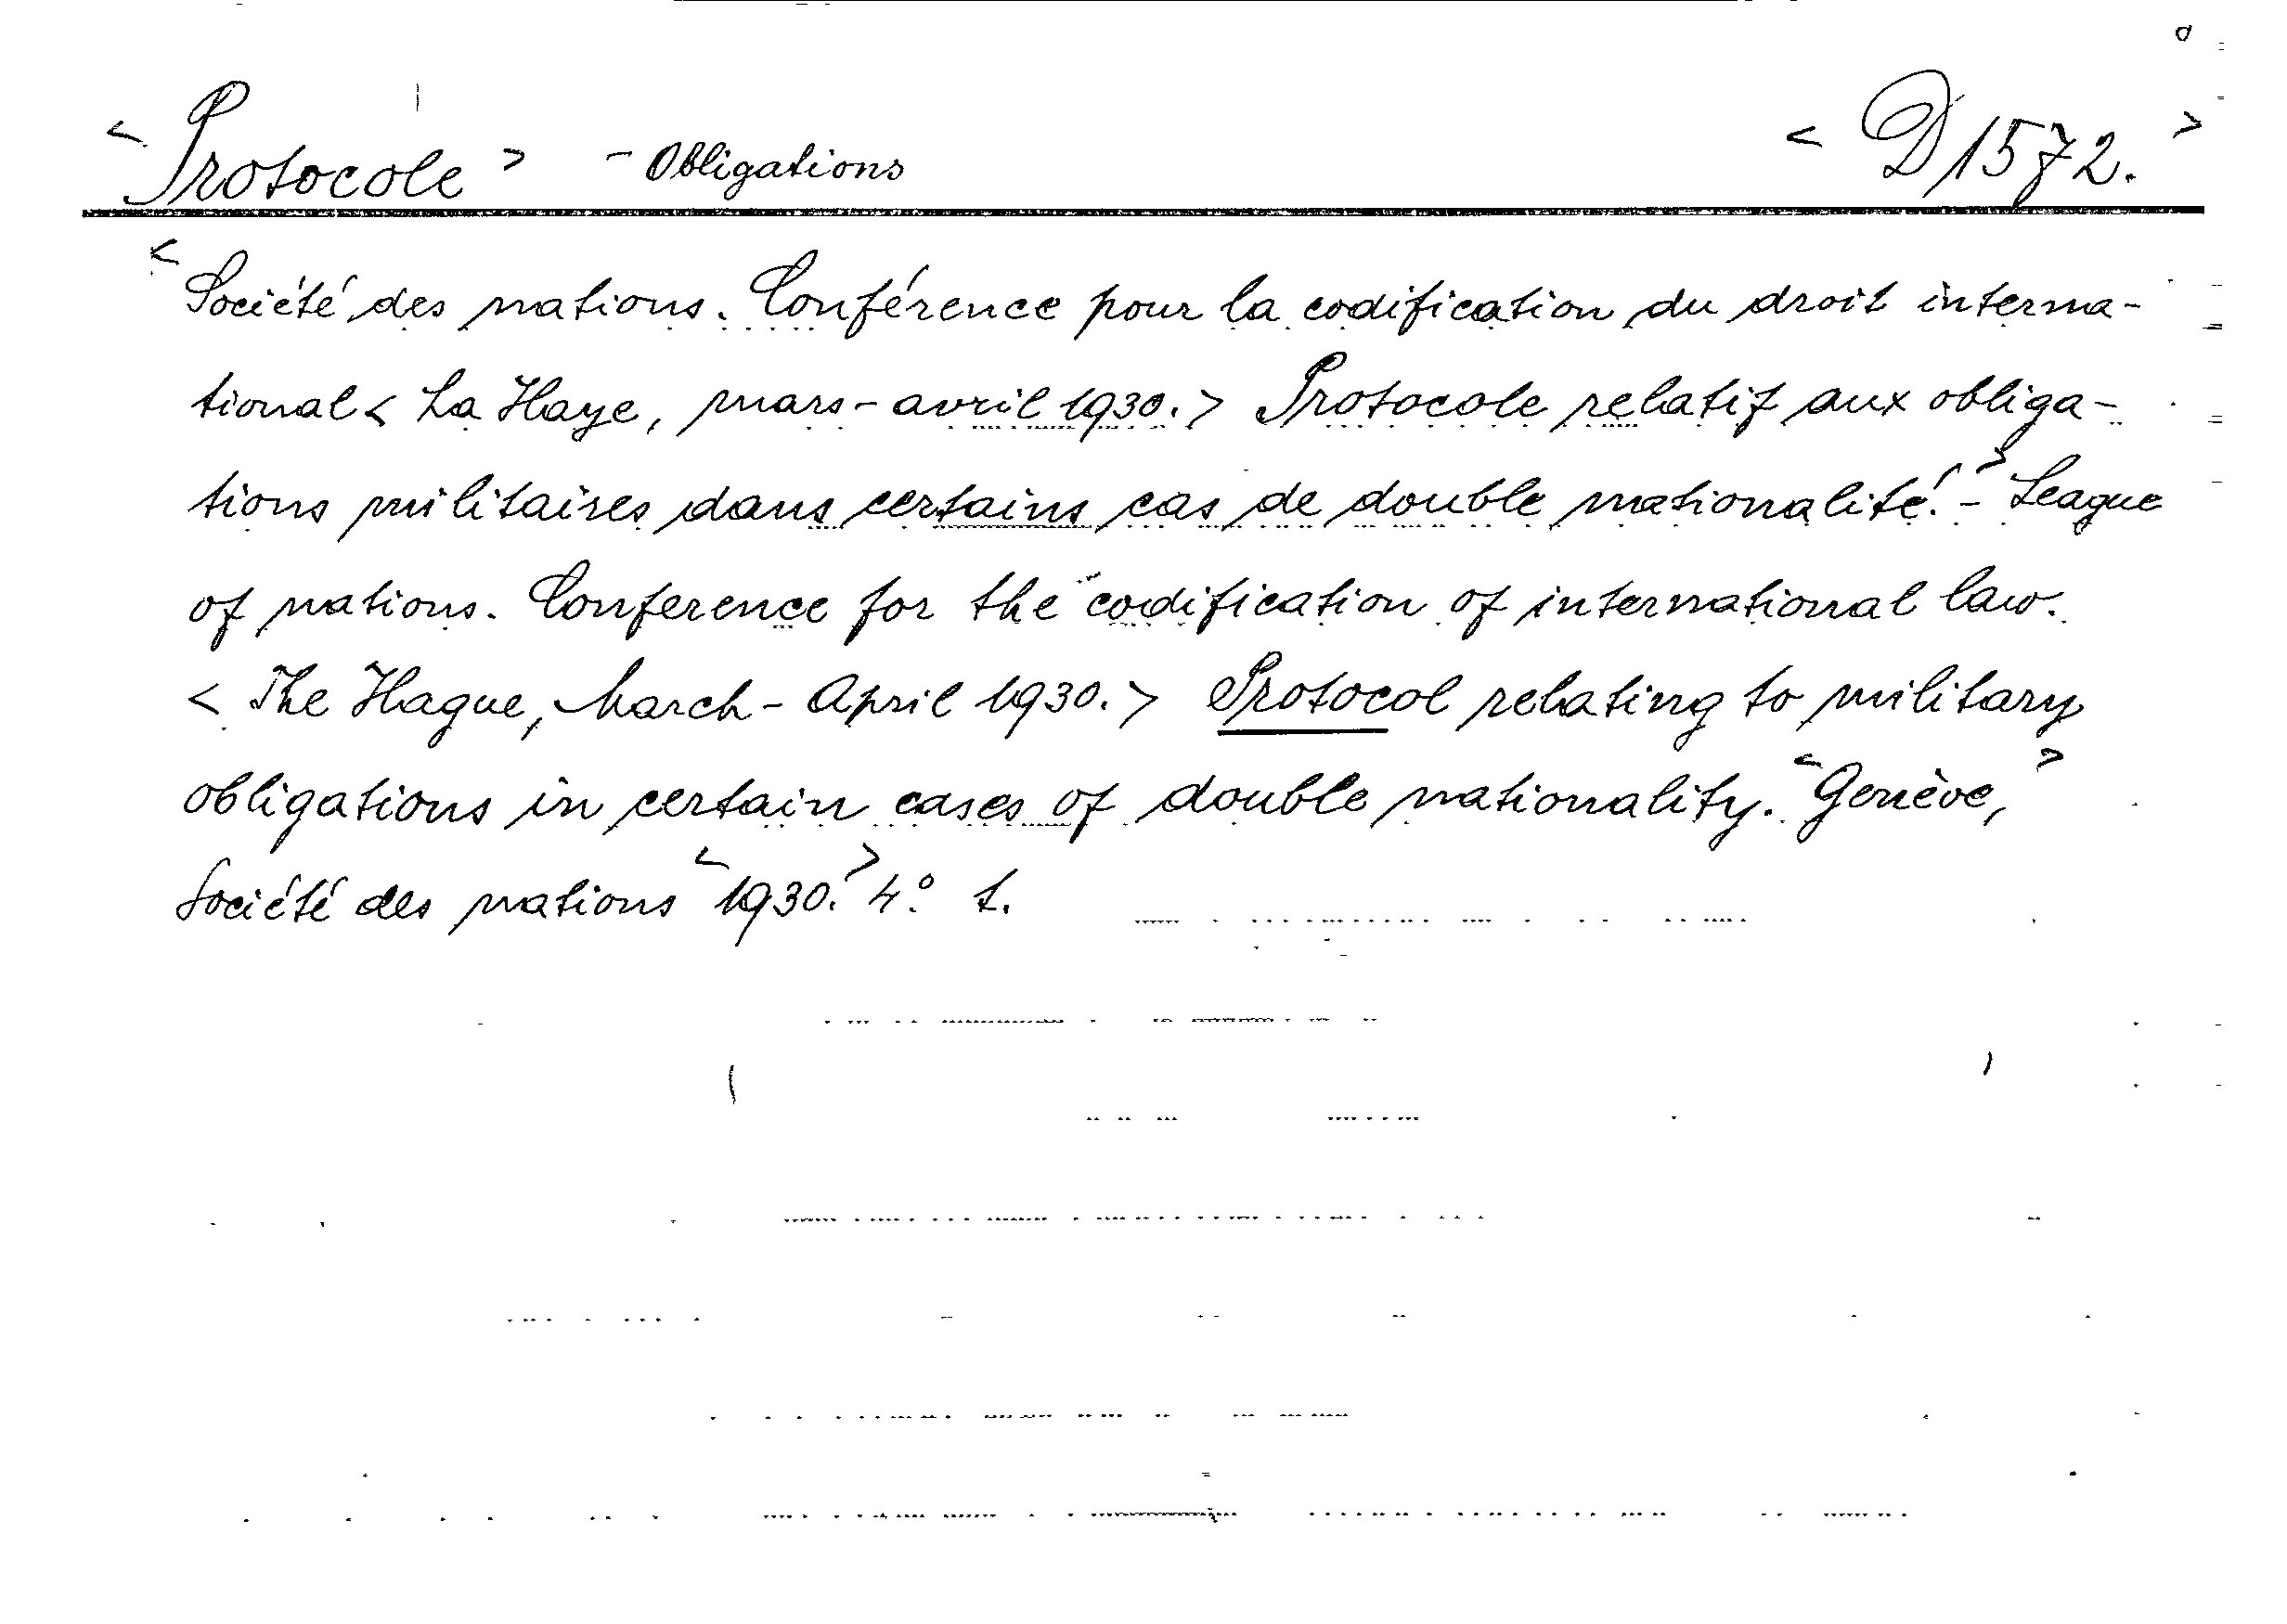 < Protocole > - Obligations < D 1572. >
< Société des nations. Conférence pour la codification du droit interna-
tional < La Haye, mars - avril 1930. > Protocole relatif aux obliga-
tions militaires dans certains cas de double nationalité. > - League
of nations. Conference for the codification of international law.
< The Hague, March - April 1930. > Protocol relating to military
obligations in certain cases of double nationality. < Genève, >
Société des nations < 1930. > 4° 1.